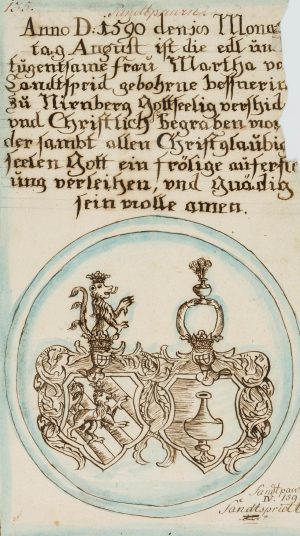 155.
Sandtpaurin
Anno D: 1590 den 10 Mona
tag August ist die edl ün
tugentsame frau Martha vo
Sandtsprid gebohrne hessnerin
Zü Nirnberg Gottseelig vershid
und Christlich begraben wor
der sambt allen Christ glaubig
seelen Gott ein frölige auferste
ung verleihen, und gnädig
sein wolle amen.
Sandtpaw
IV. 159